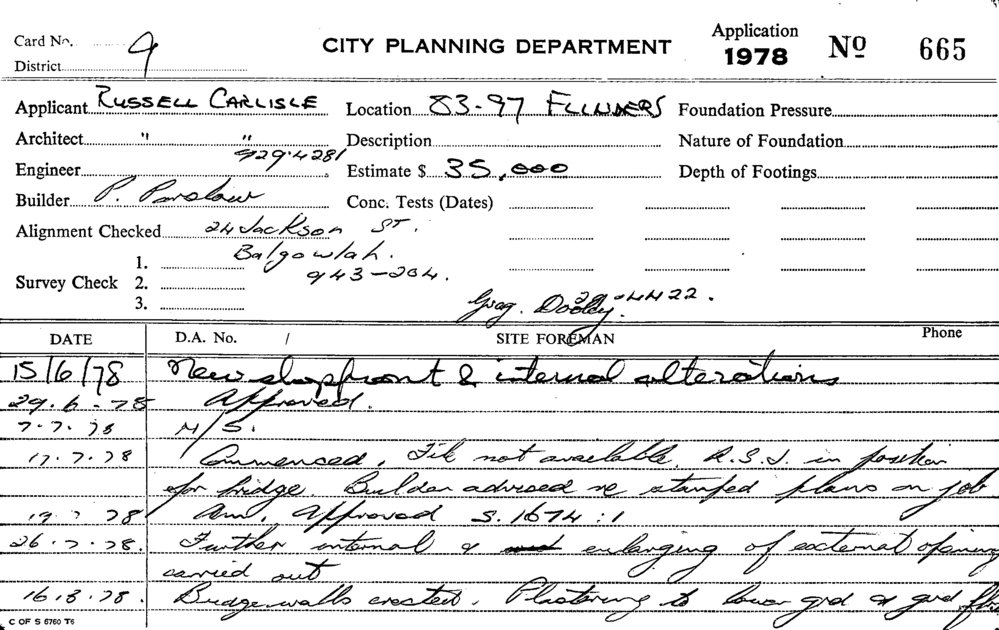 Card No. 9
District
CITY PLANNING DEPARTMENT
Application
1978 No 665
Applicant RUSSELL CARLISLE Location 83-97 FLINDERS Foundation Pressure
Architect " " Description Nature of Foundation
929.4281
Engineer Estimate $ 35,000 Depth of Footings
Builder P. Parslow Conc. Tests (Dates)
Alignment Checked 24 Jackson ST.
Balgowlah.
943-204.
Survey Check 1.
2.
3.
Greg. Dooley. 4422.
DATE D.A. No. / SITE FOREMAN Phone
15/6/78 New shopfront & internal alterations
29.6.78 Approved.
7.7.78 N/S.
17.7.78 Commenced. File not available. R.S.J. in position
for bridge. Builder advised re stamped plans on job
19.7.78 Am. Approved S.1674:1
26.7.78. Further internal & enlarging of external opening
carried out
16.8.78. Bridge walls erected. Plastering to lower grd & grd
C OF S 6760 T6